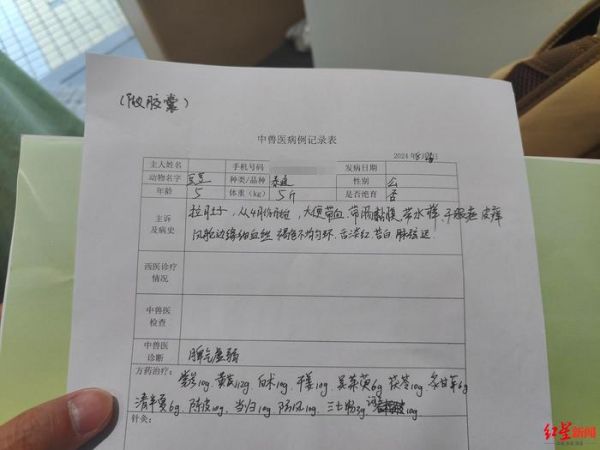 (做胶囊)
中兽医病例记录表
2024 8月 日
主人姓名 手机号码 发病日期
动物名字 豆豆 种类/品种 泰迪 性别 公
年龄 5 体重(kg) 5斤 是否绝育 否
主诉及病史 拉肚子,从4月份开始,大便带血,带肠黏膜,带水样
舌淡红 苔白 脉
西医诊疗情况
中兽医检查
中兽医诊断 脾气虚弱
方药治疗: 党参10g、黄芪12g、白术10g、干姜10g、吴茱萸6g、茯苓10g、炙甘草6g
清半夏6g、陈皮10g、当归10g、防风10g、三七粉3g 10g
针灸:
红星新闻